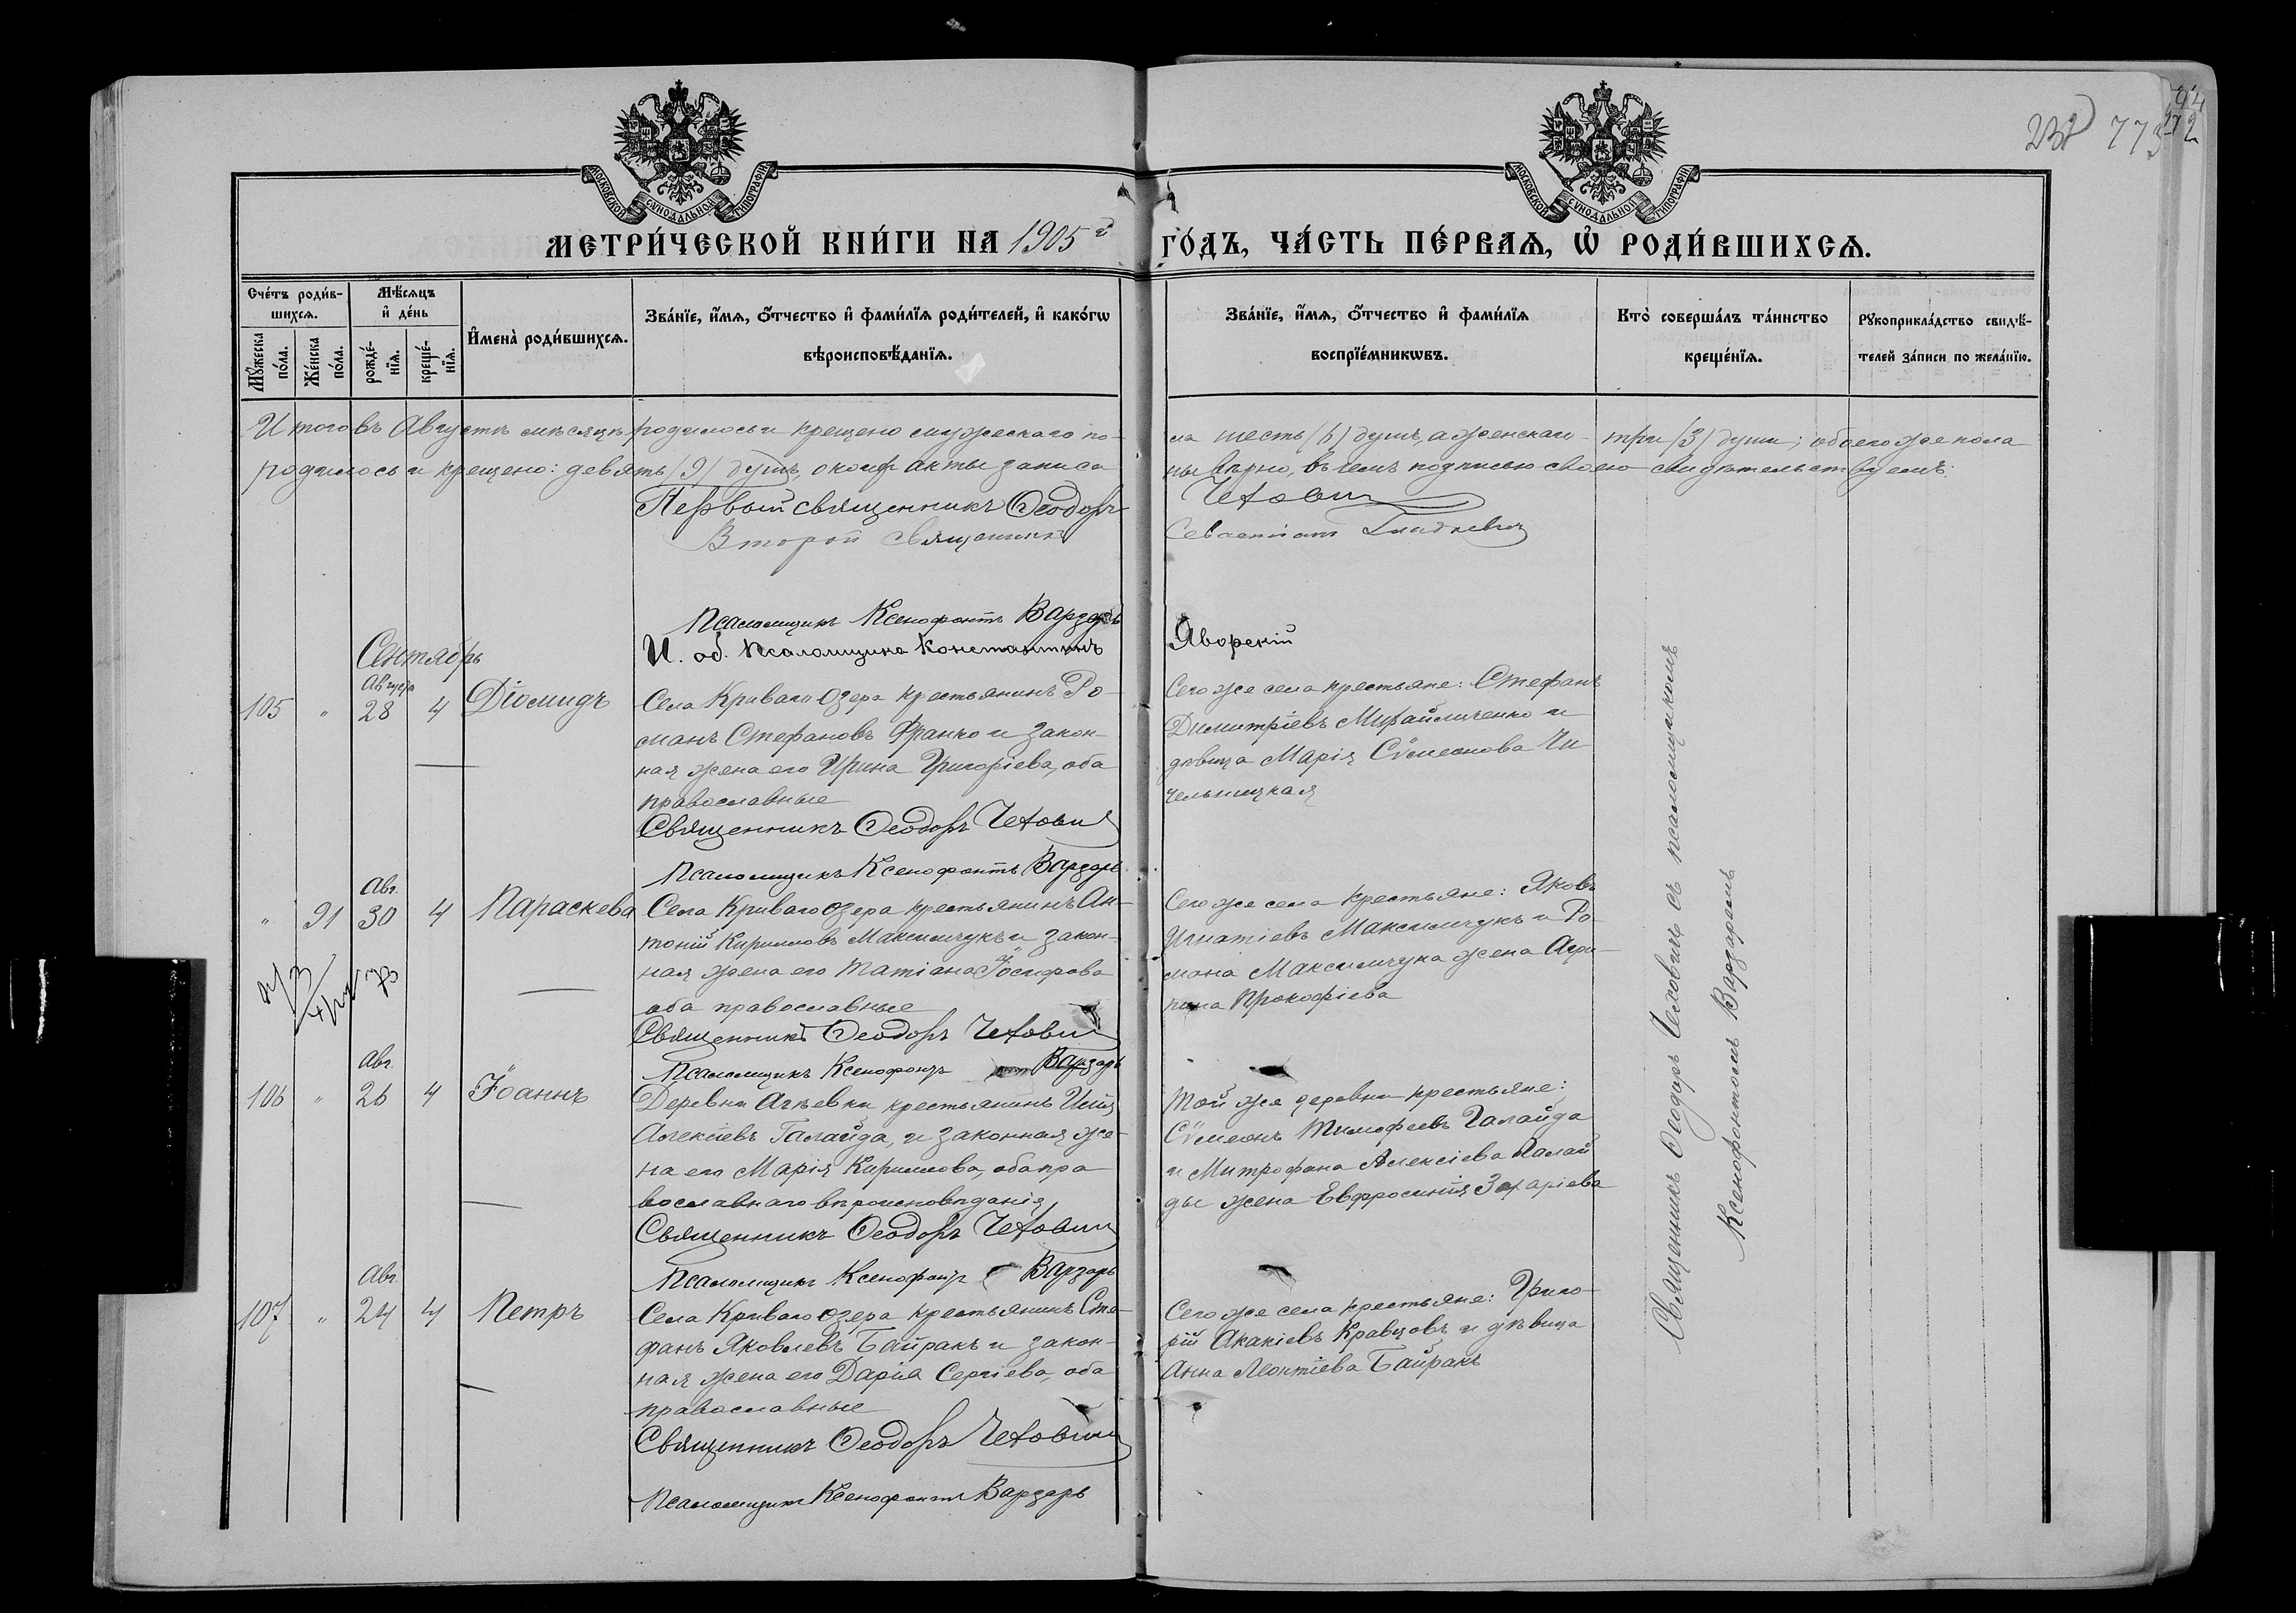 232 773
МОСКОВСКОЙ СѴНОДАЛЬНОЙ ТИПОГРАФІИ
МОСКОВСКОЙ СѴНОДАЛЬНОЙ ТИПОГРАФІИ
МЕТРИ́ЧЕСКОЙ КНИ́ГИ НА 1905й ГО́ДЪ, ЧА́СТЬ ПЕ́РВАЯ, Ѡ҆ РОДИ́ВШИХСЯ.
Сче́тъ роди́в-
шихся.
Мꙋ́жеска по́ла.
Же́нска по́ла.
Мѣ́сяцъ
и҆ де́нь
рожде́-
нїя.
креще́-
нїя.
И҆мена̀ роди́вшихся.
Зва́нїе, и҆́мя, ѻ҆́тчество и҆ фами́лїя роди́телей, и҆ како́гѡ
вѣроисповѣ́данїя.
Зва́нїе, и҆́мя, ѻ҆́тчество и҆ фами́лїя
воспрїе́мникѡвъ.
Кто̀ соверша́лъ та́инство
креще́нїя.
Рꙋкоприкла́дство свидѣ́-
телей за́писи по жела́нїю.
Итого въ Августѣ мѣсяцѣ родилось и крещено мужескаго по-
ла шесть /6/ душъ, а женскаго - три /3/ души; обоего же пола
родилось и крещено: девять /9/ душъ, о коихъ акты записа
ны вѣрно, въ чемъ подписью своею свидѣтельствуемъ:
Первый священникъ Ѳеодоръ Чехович
Второй Священникъ
Псаломщикъ Ксенофонтъ Варзарь
И. об. псаломщика Константинъ Яворскій
Сентябрь
Августа
105 " 28 4 Діомидъ
Села Криваго Озера крестьянинъ Ро-
манъ Стефановъ Франко и закон-
ная жена его Ирина Григоріева, оба
православные
Священникъ Ѳеодоръ Чехович
Псаломщикъ Ксенофонтъ Варзарь
Сего же села крестьяне: Стефанъ
Димитріевъ Михайличенко и
дѣвица Марія Сѵмеонова Чи
чельницкая
Авг.
" 91 30 4 Параскева
Села Криваго Озера крестьянинъ Ан-
тоній Кирилловъ Максимчукъ и закон-
ная жена его Татіана Іосифова
оба православные
Священникъ Ѳеодоръ Чехович
Псаломщикъ Ксенофонтъ Варзарь
Сего же села крестьяне: Яковъ
Игнатіевъ Максимчукъ и Ро-
мана Максимчука жена Агри-
пина Прокофіева
Авг.
106 " 26 4 Іоаннъ
Деревни Агѣевки крестьянинъ
Алексіевъ Галайда, и законная же-
на его Марія Кириллова, оба пра
вославнаго вѣроисповѣданія
Священникъ Ѳеодоръ Чехович
Псаломщикъ Ксенофонтъ Варзарь
Той же деревни крестьяне:
Сѵмеонъ Тимофеевъ Галайда
и Митрофана Алексіева Галай
ды жена Евфросинія Захаріева
Авг
107 " 24 4 Петръ
Села Криваго Озера крестьянинъ Сте-
фанъ Яковлевъ Байракъ и закон-
ная жена его Дарія Сергіева, оба
православные
Священникъ Ѳеодоръ Чехович
Псаломщикъ Ксенофонтъ Варзарь
Сего же села крестьяне: Григо-
рій Акакіевъ Кравцовъ и дѣвица
Анна Леонтіева Байракъ
Священникъ Ѳеодоръ Чеховичъ съ псаломщикомъ
Ксенофонтомъ Варзаремъ